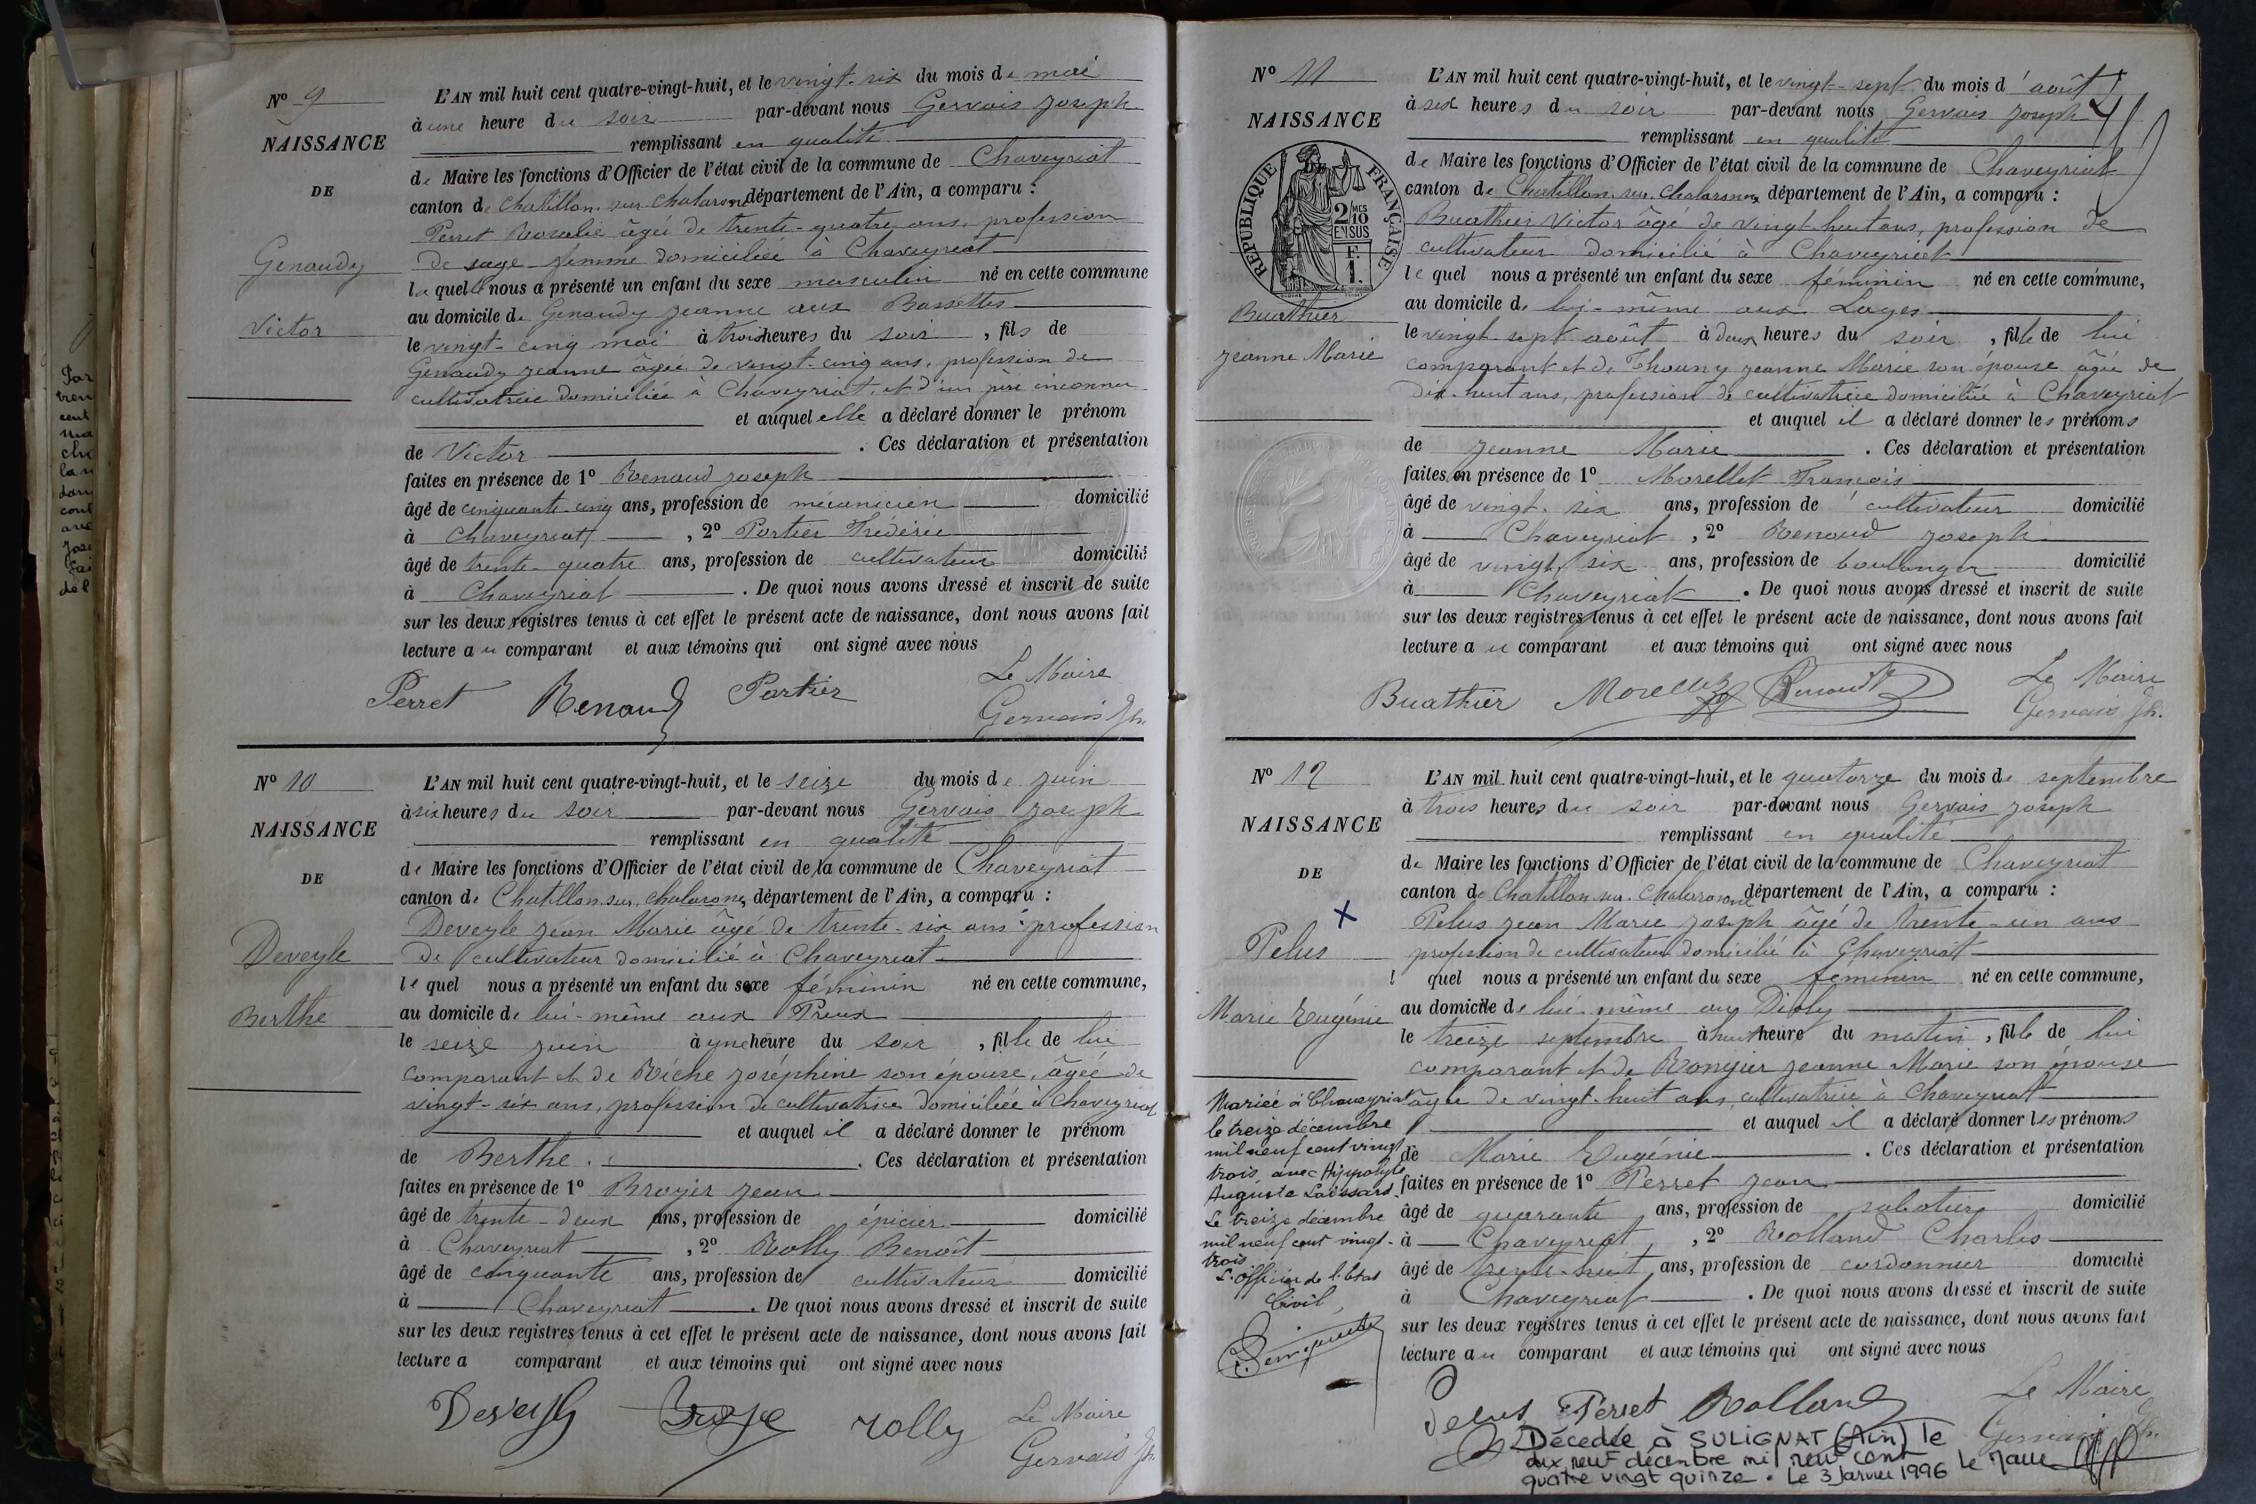 N° 9
NAISSANCE
DE
Genaudy
Victor
L'AN mil huit cent quatre-vingt-huit, et le vingt-six du mois de mai
à une heure du soir par-devant nous Gervais Joseph
remplissant en qualité
de Maire les fonctions d'Officier de l'état civil de la commune de Chaveyriat
canton de Chatillon-sur-Chalaronne département de l'Ain, a comparu :
Perret Rosalie âgée de trente-quatre ans, profession
de sage-femme domiciliée à Chaveyriat
laquelle nous a présenté un enfant du sexe masculin né en cette commune
au domicile de Genaudy Jeanne aux Bassettes
le vingt-cinq mai à trois heures du soir, fils de
Genaudy Jeanne âgée de vingt-cinq ans, profession de
cultivatrice domiciliée à Chaveyriat, et d'un père inconnu
et auquel elle a déclaré donner le prénom
de Victor. Ces déclaration et présentation
faites en présence de 1° Renaud Joseph
âgé de cinquante-cinq ans, profession de mécanicien domicilié
à Chaveyriat, 2° Portier Frédéric
âgé de trente-quatre ans, profession de cultivateur domicilié
à Chaveyriat. De quoi nous avons dressé et inscrit de suite
sur les deux registres tenus à cet effet le présent acte de naissance, dont nous avons fait
lecture au comparant et aux témoins qui ont signé avec nous
Perret Renaud Portier Le Maire
Gervais Jh.
N° 10
NAISSANCE
DE
Deveyle
Berthe
L'AN mil huit cent quatre-vingt-huit, et le seize du mois de juin
à six heures du soir par-devant nous Gervais Joseph
remplissant en qualité
de Maire les fonctions d'Officier de l'état civil de la commune de Chaveyriat
canton de Chatillon-sur-Chalaronne, département de l'Ain, a comparu :
Deveyle Jean Marie âgé de trente-six ans profession
de cultivateur domicilié à Chaveyriat
lequel nous a présenté un enfant du sexe féminin né en cette commune,
au domicile de lui-même aux Preux
le seize juin à une heure du soir, fille de lui
comparant et de Riche Joséphine son épouse, âgée de
vingt-six ans, profession de cultivatrice domiciliée à Chaveyriat
et auquel il a déclaré donner le prénom
de Berthe. Ces déclaration et présentation
faites en présence de 1° Broyer Jean
âgé de trente-deux ans, profession de épicier domicilié
à Chaveyriat, 2° Rolly Benoît
âgé de cinquante ans, profession de cultivateur domicilié
à Chaveyriat. De quoi nous avons dressé et inscrit de suite
sur les deux registres tenus à cet effet le présent acte de naissance, dont nous avons fait
lecture a comparant et aux témoins qui ont signé avec nous
Deveyle Broye Rolly Le Maire
Gervais Jh.
N° 11
NAISSANCE
RÉPUBLIQUE FRANÇAISE
2/10 EN SUS
F.
1.
Buathier
Jeanne Marie
L'AN mil huit cent quatre-vingt-huit, et le vingt-sept du mois d'août
à six heures du soir par-devant nous Gervais Joseph
remplissant en qualité
de Maire les fonctions d'Officier de l'état civil de la commune de Chaveyriat
canton de Chatillon-sur-Chalaronne département de l'Ain, a comparu :
Buathier Victor âgé de vingt-huit ans, profession de
cultivateur domicilié à Chaveyriat
lequel nous a présenté un enfant du sexe féminin né en cette commune,
au domicile de lui-même aux Loges
le vingt-sept août à deux heures du soir, fille de lui
comparant et de Thouny Jeanne Marie son épouse âgée de
dix-huit ans, profession de cultivatrice domiciliée à Chaveyriat
et auquel il a déclaré donner les prénoms
de Jeanne Marie. Ces déclaration et présentation
faites en présence de 1° Morellet François
âgé de vingt-six ans, profession de cultivateur domicilié
à Chaveyriat, 2° Renaud Joseph
âgé de vingt-six ans, profession de boulanger domicilié
à Chaveyriat. De quoi nous avons dressé et inscrit de suite
sur les deux registres tenus à cet effet le présent acte de naissance, dont nous avons fait
lecture au comparant et aux témoins qui ont signé avec nous
Buathier Morellet Renaud Le Maire
Gervais Jh.
N° 12
NAISSANCE
DE
Pelus
Marie Eugénie
Mariée à Chaveyriat
le treize décembre
mil neuf cent vingt
trois, avec Hippolyte
Auguste Laissard.
Le treize décembre
mil neuf cent vingt-
trois
L'officier de l'Etat
Civil,
L'AN mil huit cent quatre-vingt-huit, et le quatorze du mois de septembre
à trois heures du soir par-devant nous Gervais Joseph
remplissant en qualité
de Maire les fonctions d'Officier de l'état civil de la commune de Chaveyriat
canton de Chatillon-sur-Chalaronne département de l'Ain, a comparu :
Pelus Jean Marie Joseph âgé de trente-un ans
profession de cultivateur domicilié à Chaveyriat
l quel nous a présenté un enfant du sexe féminin né en cette commune,
au domicile de lui-même au
le treize septembre à huit heure du matin, fille de lui
comparant et de Rongier Jeanne Marie son épouse
âgée de vingt-huit ans cultivatrice à Chaveyriat
et auquel il a déclaré donner les prénoms
de Marie Eugénie. Ces déclaration et présentation
faites en présence de 1° Perret Jean
âgé de quarante ans, profession de sabotier domicilié
à Chaveyriat, 2° Rolland Charles
âgé de trente-huit ans, profession de cordonnier domicilié
à Chaveyriat. De quoi nous avons dressé et inscrit de suite
sur les deux registres tenus à cet effet le présent acte de naissance, dont nous avons fait
lecture au comparant et aux témoins qui ont signé avec nous
Pelus Perret Rolland Le Maire
Gervais Jh.
Décédée à SULIGNAT (Ain) le
dix neuf décembre mil neuf cent
quatre vingt quinze. Le 3 Janvier 1996 Le Maire